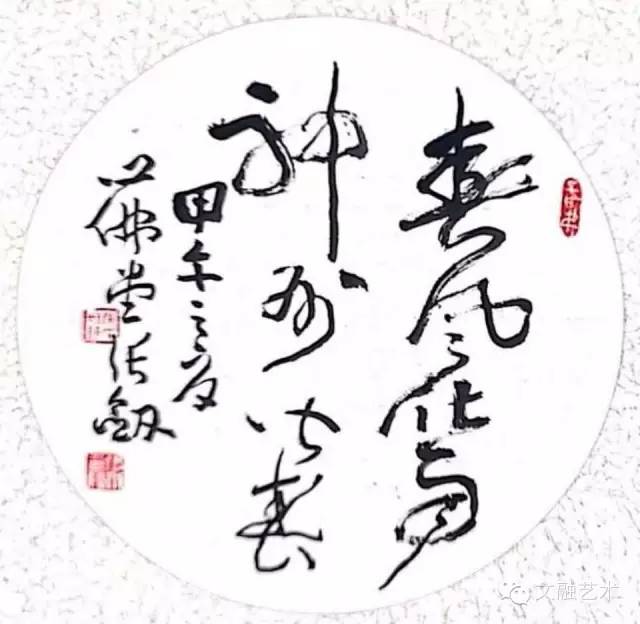 春风化雨
神州皆春
甲午之夏
心佛堂张釼
文融艺术